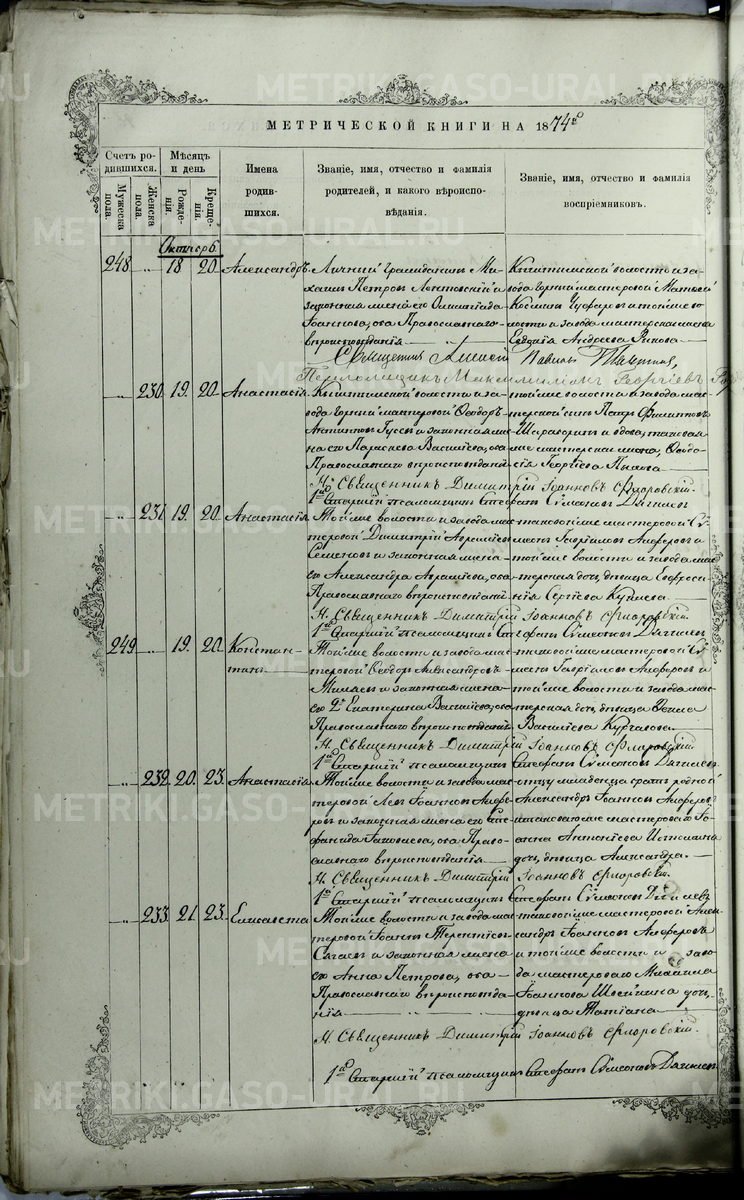 МЕТРИЧЕСКОЙ КНИГИ НА 1874й
Счетъ родившихся.
Мужеска пола.
Женска пола.
Мѣсяцъ и день
Рожденія.
Крещенія.
Имена родившихся.
Званіе, имя, отчество и фамилія родителей, и какого вѣроисповѣданія.
Званіе, имя, отчество и фамилія воспріемниковъ.
Октябр.
248 „ 18 20 Александръ.
Личный Гражданинъ Ми-
хаилъ Петровъ и
законная жена его Олимпіада
Іоаннова, оба Православнаго
вѣроисповѣданія
Кыштымской волости и за-
вода горный мастеровой Матвей
Косминъ и той же во-
лости и завода мастерская жена
Евдокія Андреева
Священникъ Алексей
Псаломщикъ Максимиліанъ Георгіевъ
„ 230 19. 20 Анастасія.
Кыштымской волости и за-
вода горный мастеровой Ѳеодоръ
Антиповъ Гусевъ и законная же-
на его Параскева Василіева, оба
Православнаго вѣроисповѣданія
той же волости и завода мас-
терской сынъ Петръ Филипповъ
и вдова, таковая
же мастерская жена, Ѳеодо-
сія Георгіева
Н. Священникъ Димитрій Іоанновъ Флоровскій.
1й Старшій псаломщикъ Стефанъ Симеоновъ Дягилевъ
„ 231 19. 20. Анастасія.
Той же волости и завода мас-
теровой Димитрій Авраміевъ
Семеновъ и законная жена
его Александра Абрамова, оба
Православнаго вѣроисповѣданія
таковой же мастеровой Си-
меонъ Гавриловъ Анферовъ и
той же волости и завода мас-
терская дочь, дѣвица Евфроси-
нія Сергіева
Н. Священникъ Димитрій Іоанновъ Флоровскій.
1й Старшій псаломщикъ Стефанъ Симеоновъ Дягилевъ
249 „ 19. 20. Констан-
тинъ.
Той же волости и завода мас-
теровой Ѳеодоръ Александровъ
и законная жена
его 2я Екатерина Василіева, оба
Православнаго вѣроисповѣданія
таковой же мастеровой Си-
меонъ Гавриловъ Анферовъ и
той же волости и завода мас-
терская дочь, дѣвица
Василіева
Н. Священникъ Димитрій Іоанновъ Флоровскій
1й Старшій псаломщикъ Стефанъ Симеоновъ Дягилевъ
„ 232 20. 23. Анастасія.
Той же волости и завода мас-
теровой Левъ Іоанновъ Анферо-
въ и законная жена его Сте-
фанида Іаковлева, оба Право-
славнаго вѣроисповѣданія
отцу младенца братъ родной
Александръ Іоанновъ Анферовъ
и таковаго же мастероваго Іо-
анна Антоніева
дочь, дѣвица Александра.
Н. Священникъ Димитрій Іоанновъ Флоровскій.
1й Старшій псаломщикъ Стефанъ Симеоновъ Дягилевъ
„ 233 21. 23. Елисавета
Той же волости и завода мас-
теровой Іоаннъ Терентіевъ
и законная жена
его Анна Петрова, оба
Православнаго вѣроисповѣда-
нія
таковой же мастеровой Алек-
сандръ Іоанновъ Анферовъ
и той же волости и заво-
да мастероваго Михаила
Іоаннова дочь,
дѣвица Татіана
Н. Священникъ Димитрій Іоанновъ Флоровскій.
1й Старшій псаломщикъ Стефанъ Симеоновъ Дягилевъ
METRIKI.GASO-URAL.RU